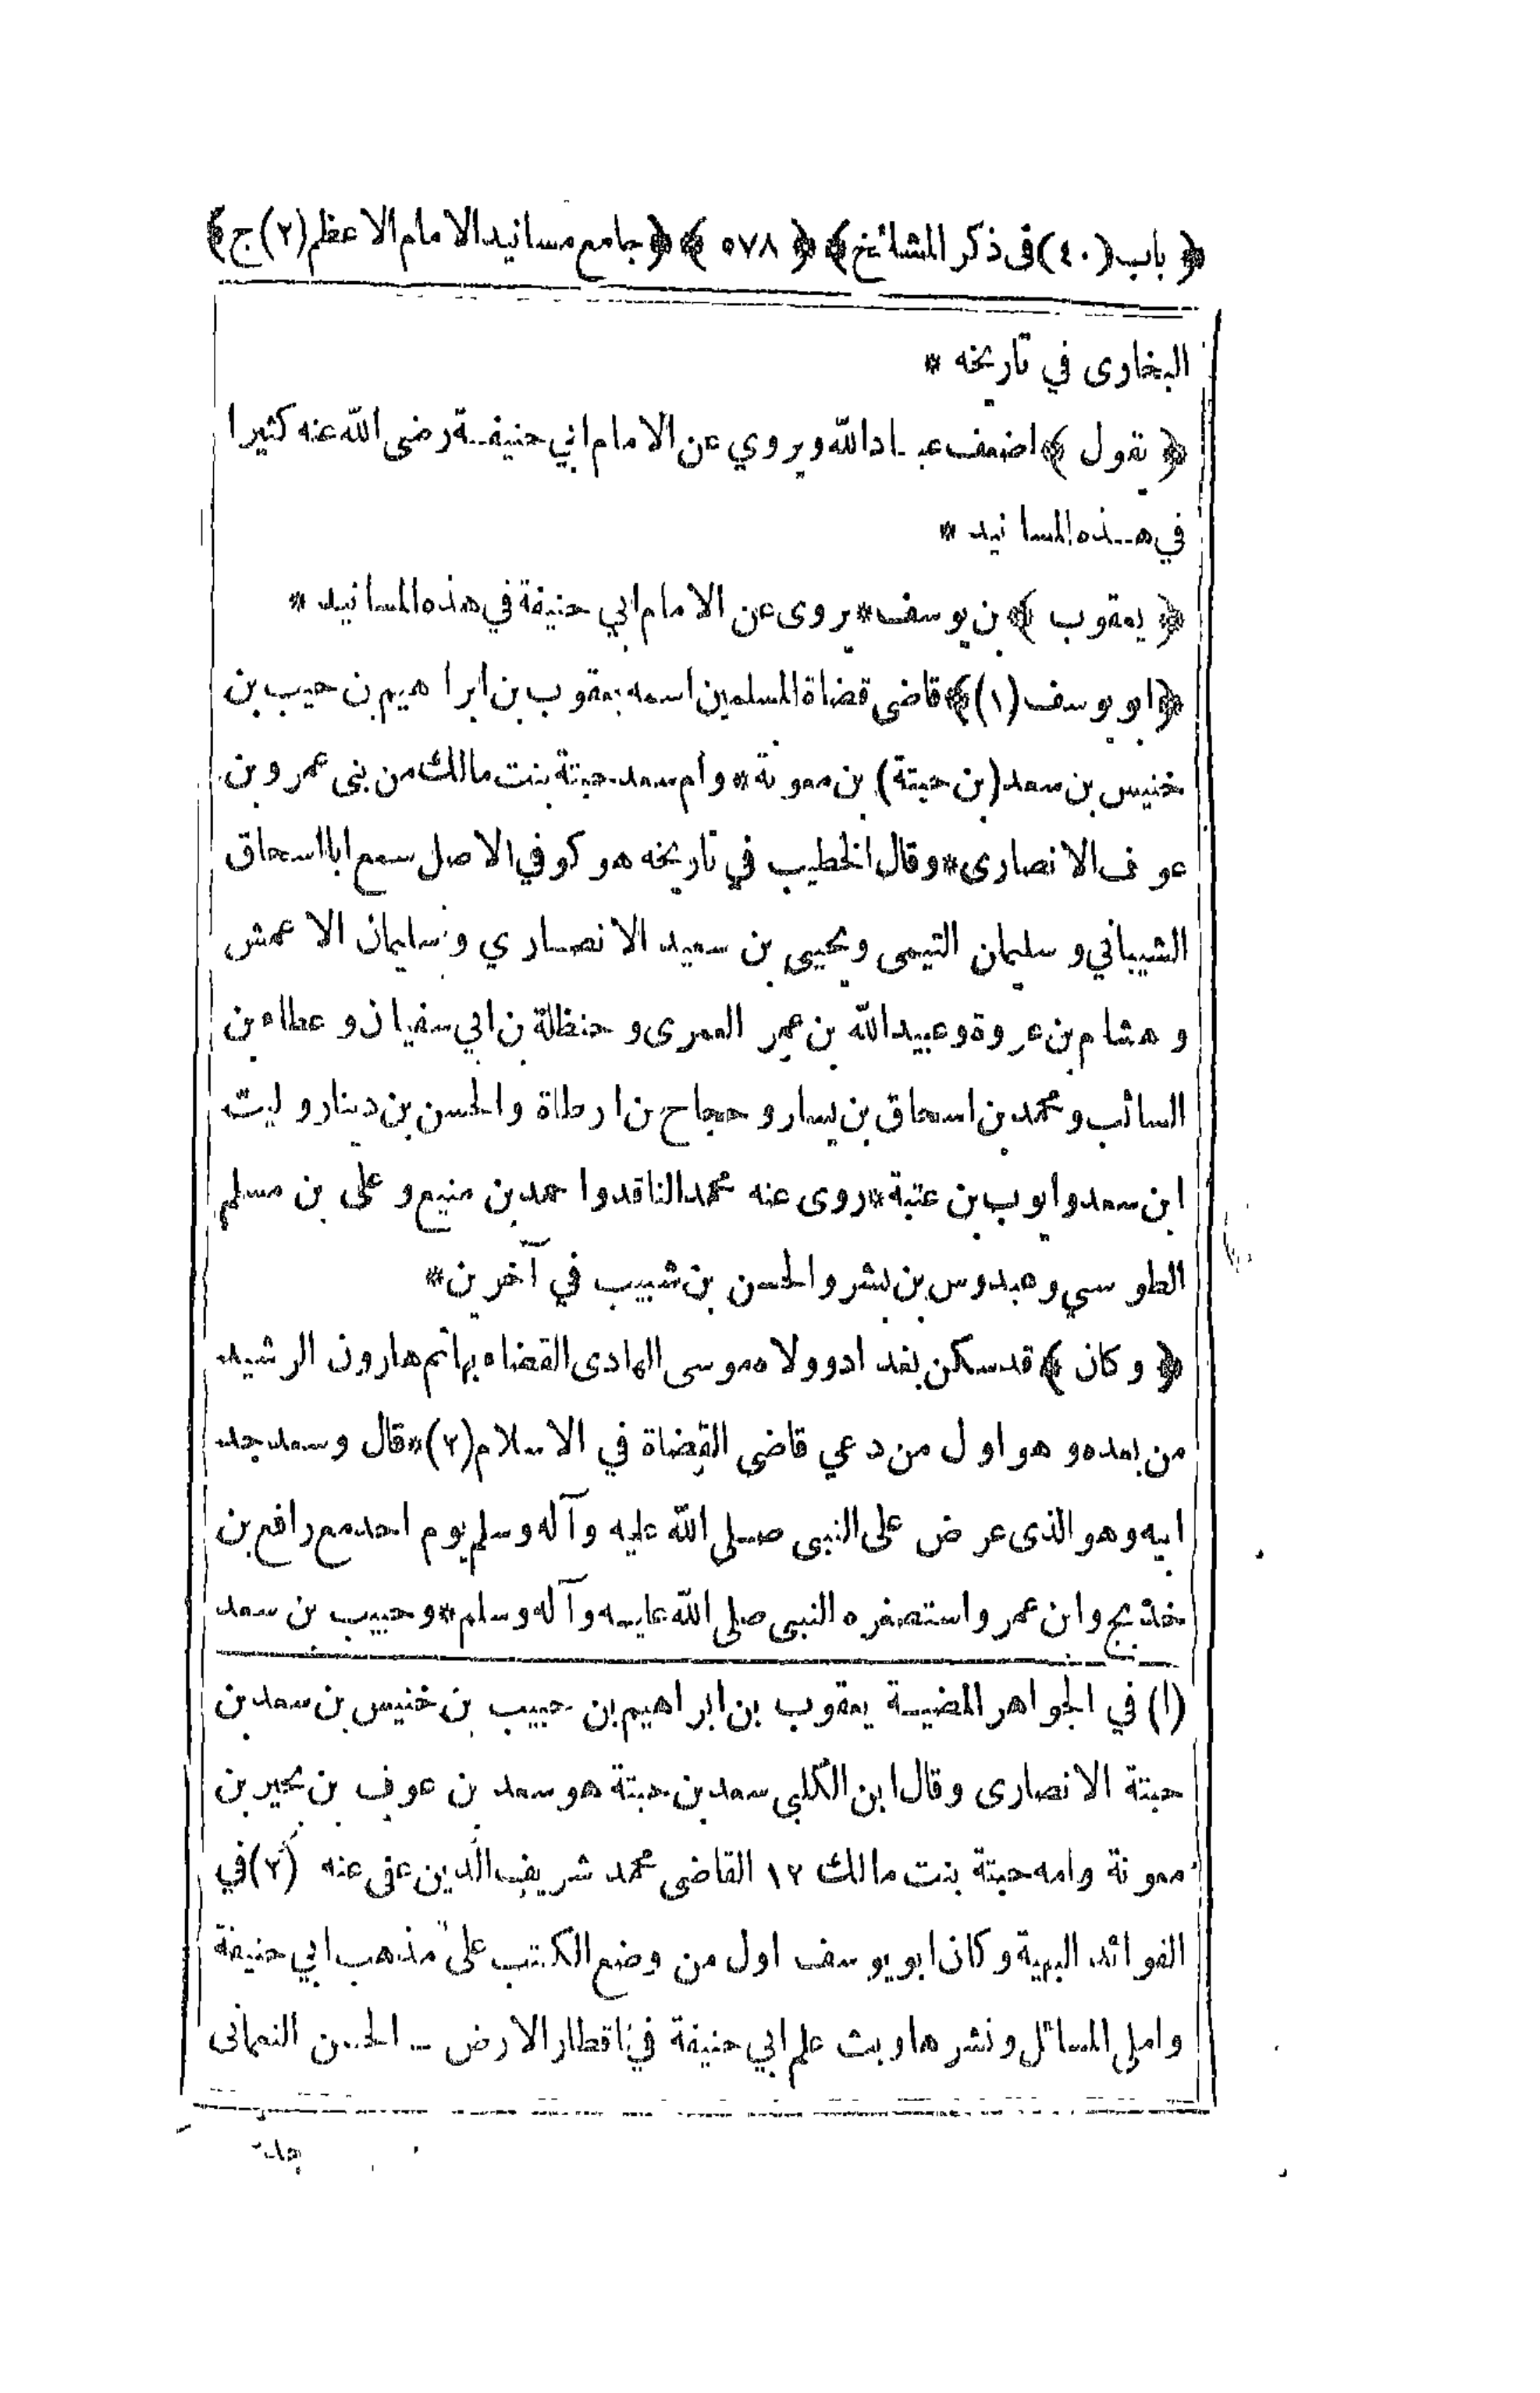 ﴿ باب (٤٠) فى ذكر المشائخ ﴾ ﴿ ٥٧٨ ﴾ ﴿ جامع مسانيد الامام الاعظم (٢) ج ﴾
البخاوى في تاريخه *
﴿ يقول ﴾ اضعف عباد الله ويروي عن الامام ابي حنيفة رضى الله عنه كثيرا
في هذه المسانيد *
﴿ يعقوب ﴾ بن يوسف * يروى عن الامام ابي حنيفة في هذه المسانيد *
﴿ ابو يوسف (١) ﴾ قاضى قضاة المسلمين اسمه يعقوب بن ابراهيم بن حبيب بن
خنيس بن سعد (بن حبتة) بن معونة * وام سعد حبتة بنت مالك من بنى عمرو بن
عوف الانصارى * وقال الخطيب في تاريخه هو كوفي الاصل سمع ابا اسحاق
الشيباني و سليمان التيمى ويحيى بن سعيد الانصاري و سليمان الاعمش
و هشام بن عروة و عبيد الله بن عمر العمرى و حنظلة بن ابي سفيان و عطاء بن
السائب و محمد بن اسحاق بن يسار و حجاج بن ارطاة والحسن بن دينار و ليث
ابن سعد وايوب بن عتبة * روى عنه محمد الناقد واحمد بن منيع و على بن مسلم
الطوسي و عبدوس بن بشر والحسن بن شبيب في آخرين *
﴿ وكان ﴾ قد سكن بغداد وولاه موسى الهادى القضاء بها ثم هارون الرشيد
من بعده و هو اول من دعي قاضى القضاة في الاسلام (٢) * قال وسعد جد
ابيه وهو الذى عرض على النبى صلى الله عليه وآله وسلم يوم احد مع رافع بن
خديج وابن عمر واستصغره النبى صلى الله عليه وآله وسلم * وحبيب بن سعد
(١) في الجواهر المضية يعقوب بن ابراهيم بن حبيب بن خنيس بن سعد بن
حبتة الانصارى وقال ابن الكلبي سعد بن حبتة هو سعد بن عوف بن بحير بن
معونة وامه حبتة بنت مالك ١٢ القاضى محمد شريف الدين عفى عنه (٢) في
الفوائد البهية وكان ابو يوسف اول من وضع الكتب على مذهب ابي حنيفة
واملى المسائل و نشرها وبث علم ابي حنيفة في اقطار الارض - الحسن النعمانى